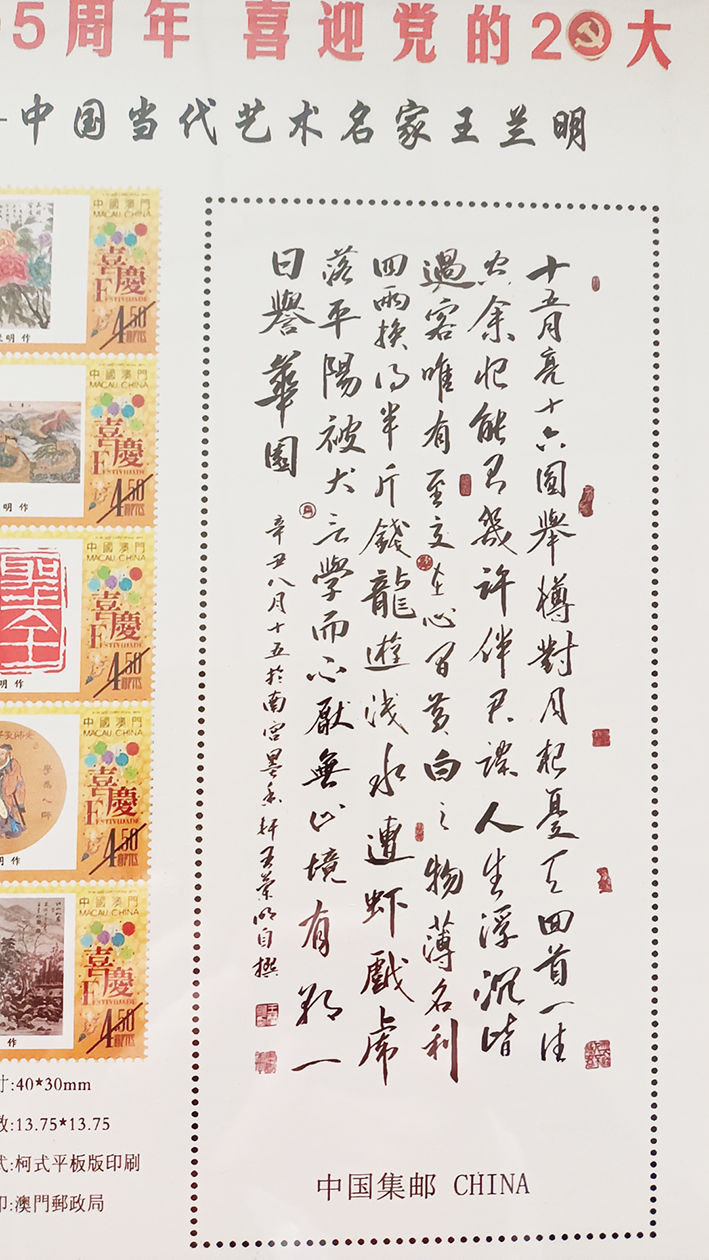 5周年 喜迎党的20大
中国当代艺术名家王兰明
中國澳門
MACAU CHINA
喜慶
FESTIVIDADE
4.50
PTCS
明 作
中國澳門
MACAU CHINA
喜慶
FESTIVIDADE
4.50
PTCS
明 作
中國澳門
MACAU CHINA
喜慶
FESTIVIDADE
4.50
PTCS
明 作
中國澳門
MACAU CHINA
喜慶
FESTIVIDADE
4.50
PTCS
明 作
中國澳門
MACAU CHINA
喜慶
FESTIVIDADE
4.50
PTCS
作
寸:40*30mm
数:13.75*13.75
式:柯式平板版印刷
印:澳門郵政局
十五月亮十六圆舉樽對月杞憂天回首一往
余能君幾許伴君谋人生浮沉皆
過客唯有至交在心間黄白之物薄名利
四兩换得半斤錢龍遊浅水遭虾戲虎
落平陽被犬言學而心厭無止境有朝一
日譽華園
辛丑八月十五於南宫墨香轩王兰明自撰
中国集邮 CHINA